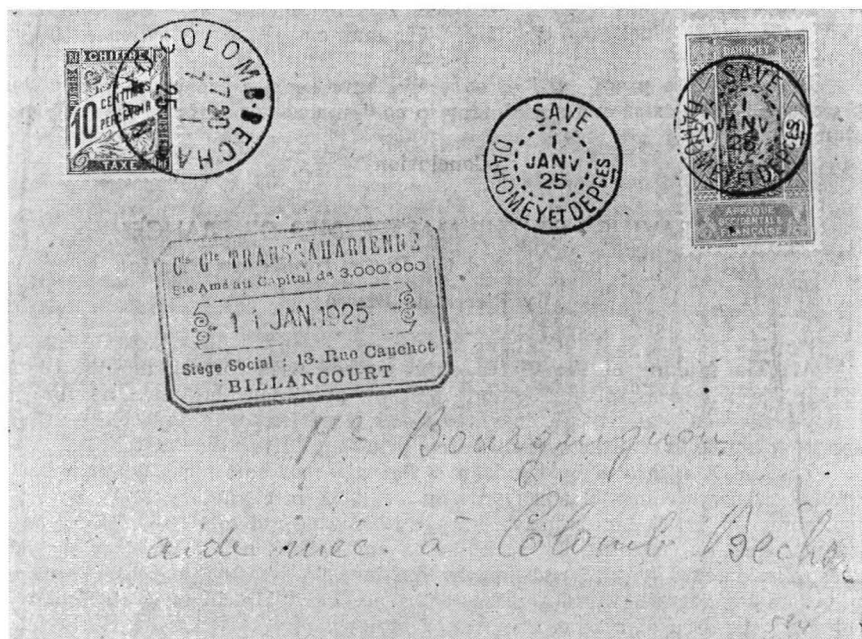 CHIFFRE
10
CENTIMES
PERCEVOIR
TAXE
COLOMB-BECHAR
17 30
25
SAVE
1
JANV
25
DAHOMEY ET DEPCES
DAHOMEY
SAVE
1
JANV
25
DAHOMEY ET DEPCES
AFRIQUE
OCCIDENTALE
FRANÇAISE
Cie Gle TRANSSAHARIENNE
Sté Ame au Capital de 3.000.000
11 JAN. 1925
Siège Social : 13. Rue Cauchot
BILLANCOURT
Bourguignon
aide mec. à Colomb Béchar